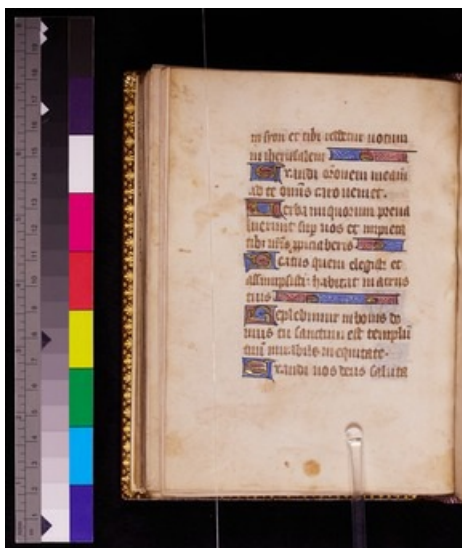 in syon et tibi reddetur uotum
in iherusalem
Exaudi or̄onem meam
ad te omīs caro ueniet.
Uerba iniquorum preua
luerunt sup nos et impieta
tibi nr̄is ꝓpiciaberis
Beatus quem elegisti et
assumpsisti: habitat in atriis
tuis
Replebimur in bonis do
mus tue sanctum est templū
tuū mirabile in equitate.
Exaudi nos deus saluta